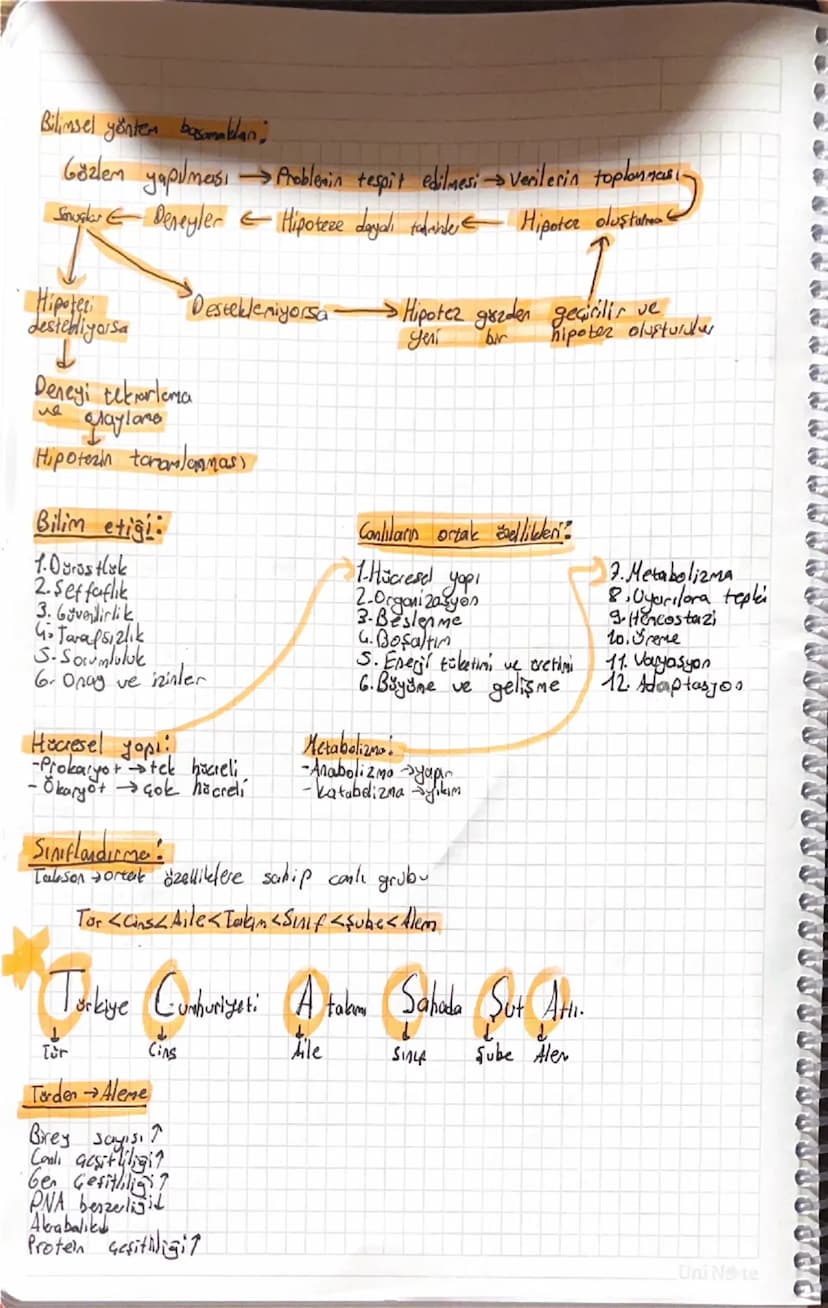 Bilimsel yöntem basamakları:
Gözlem yapılması → Problemin tespit edilmesi → Verilerin toplanması
Sonuçlar ← Deneyler ← Hipoteze dayalı tahminler ← Hipotez oluşturma
Hipotezi
destekliyorsa
Desteklemiyorsa → Hipotez gözden geçirilir ve
yeni bir hipotez oluşturulur
Deneyi tekrarlama
ve onaylama
Hipotezin tanımlanması
Bilim etiği:
1. Dürüstlük
2. Şeffaflık
3. Güvenilirlik
4. Tarafsızlık
5. Sorumluluk
6. Onay ve izinler
Canlıların ortak özellikleri:
1. Hücresel yapı
2. Organizasyon
3. Beslenme
4. Boşaltım
5. Enerji tüketimi ve üretimi
6. Büyüme ve gelişme
7. Metabolizma
8. Uyarılara tepki
9. Homeostazi
10. Üreme
11. Varyasyon
12. Adaptasyon
Hücresel yapı:
- Prokaryot → tek hücreli
- Ökaryot → çok hücreli
Metabolizma:
- Anabolizma → yapım
- Katabolizma → yıkım
Sınıflandırma:
Takson → ortak özelliklere sahip canlı grubu
Tür < Cins < Aile < Takım < Sınıf < Şube < Alem
Türkiye Cumhuriyeti Atakan Sahada Şut Attı.
Tür Cins Aile Sınıf Şube Alem
Türden → Aleme
Birey sayısı ↑
Canlı çeşitliliği ↑
Gen çeşitliliği ↑
DNA benzerliği ↓
Akrabalık ↓
Protein çeşitliliği ↑
UniNote